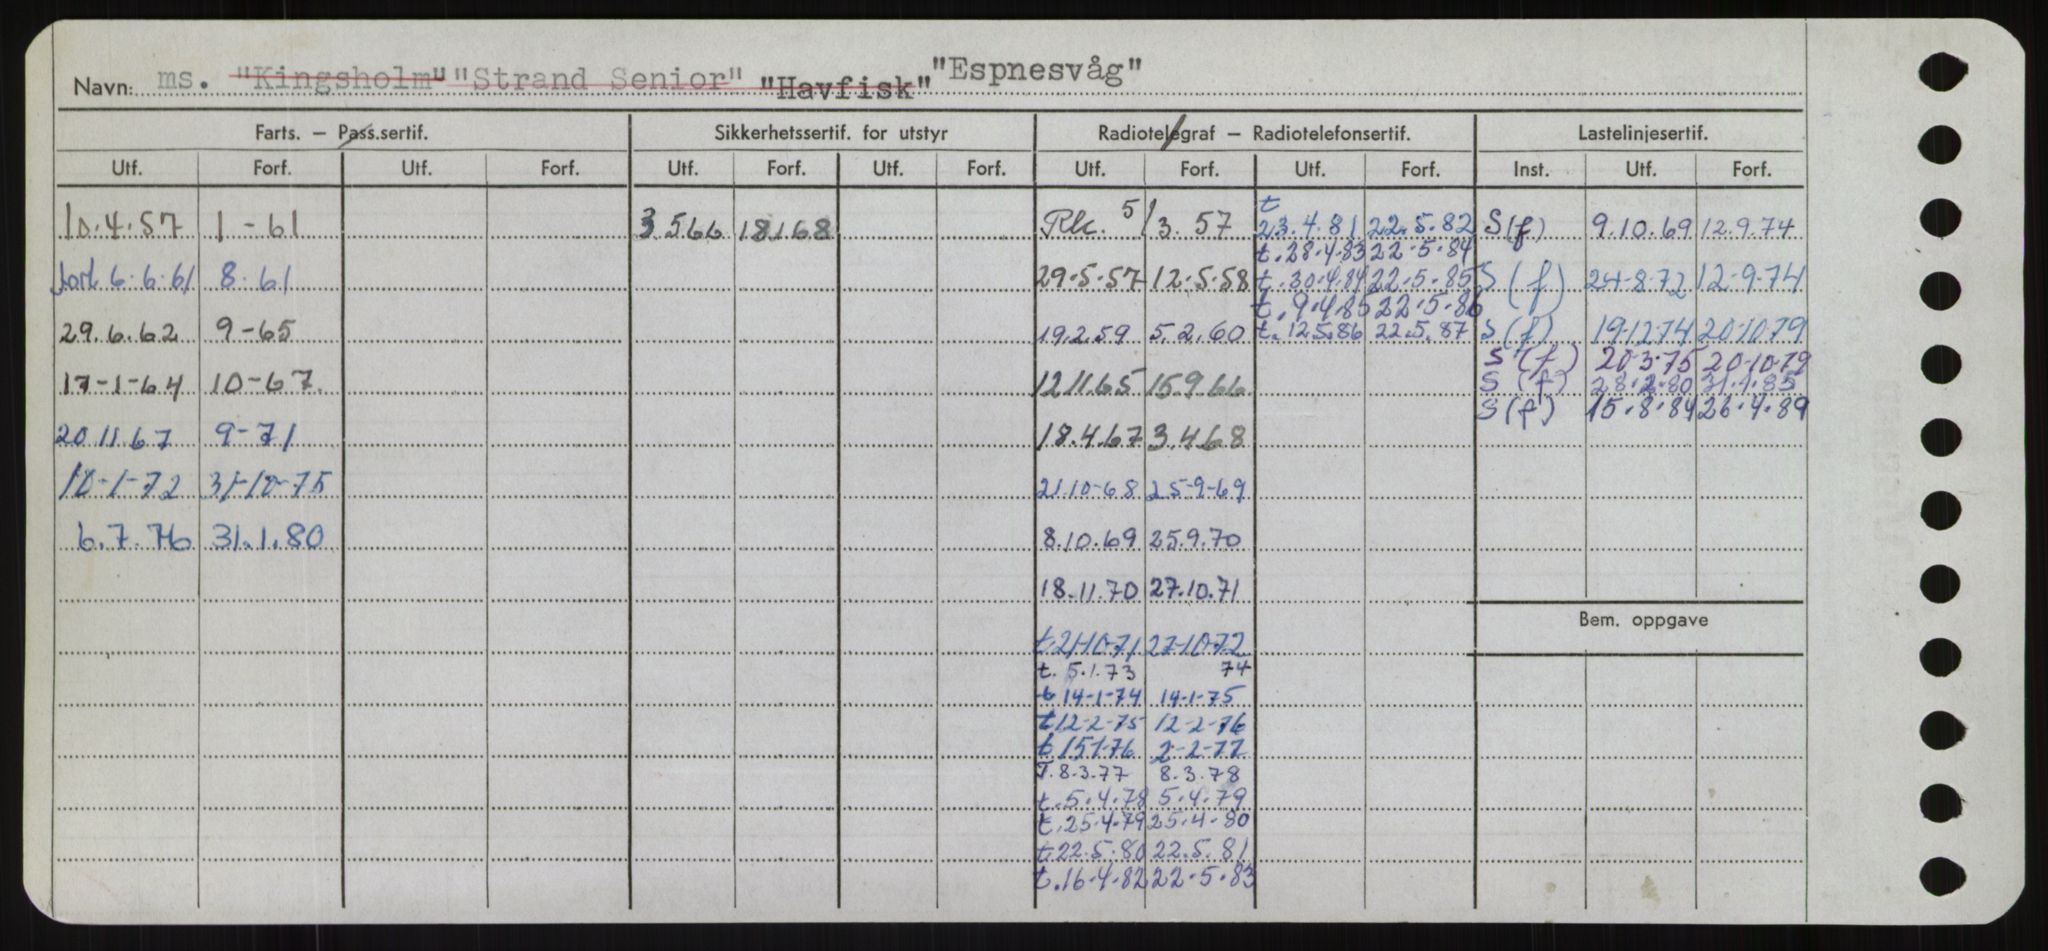 Navn: ms. "Kingsholm" "Strand Senior" "Havfisk" "Espnesvåg"
Farts. — Pass.sertif. Sikkerhetssertif. for utstyr Radiotelegraf — Radiotelefonsertif. Lastelinjesertif.
Utf. Forf. Utf. Forf. Utf. Forf. Utf. Forf. Utf. Forf. Utf. Forf. Inst. Utf. Forf.
10.4.57 1-61 3 5 66 18 1 68 5/3. 57 t 23.4.81 22.5.82 S(f) 9.10.69 12.9.74
t. 28.4.83 22.5.84
6.6.61 8.61 29.5.57 12.5.58 t. 30.4.84 22.5.85 S (f) 24-8-72 12-9-74
t. 9.4.85 22.5.86
29.6.62 9-65 19.2.59 5.2.60 t. 12.5.86 22.5.87 S (f) 19-12-74 20-10-79
S (f) 20-3-75 20-10-79
17-1-64 10-67. 12.11.65 15.9.66 S (f) 28.2.80 31.1.85
S (f) 15.8.84 26.4.89
20 11 67 9-71 18.4.67 3.4.68
18-1-72 31-10-75 21.10-68 25-9-69
6.7.76 31.1.80 8.10.69 25.9.70
18.11.70 27.10.71
Bem. oppgave
t 21-10-71 27-10-72
t. 5.1.73 74
t 14-1-74 14-1-75
t 12-2-75 12-2-76
t 15-1-76 2-2-77
T. 8.3.77 8.3.78
t. 5.4.78 5.4.79
t. 25.4.79 25.4.80
t. 22.5.80 22.5.81
t. 16.4.82 22.5.83